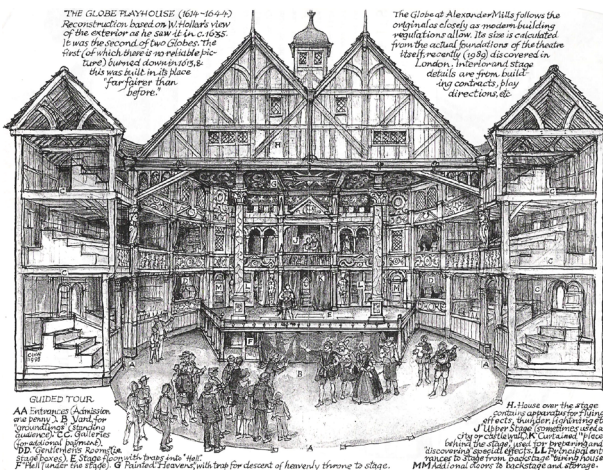 THE GLOBE PLAYHOUSE (1614-1644)
Reconstruction based on W. Hollar's view
of the exterior as he saw it in c.1635.
It was the second of two Globes. The
first (of which there is no reliable pic-
ture) burned down in 1613, &
this was built in its place
"far fairer than
before."
The Globe at Alexander Mills follows the
original as closely as modern building
regulations allow. Its size is calculated
from the actual foundations of the theatre
itself, recently (1989) discovered in
London. Interior and stage
details are from build-
ing contracts, play
directions, etc
GUIDED TOUR
AA Entrances (Admission
one penny). B Yard, for
"groundlings" (standing
audience). C.C. Galleries
(for additional payment).
"DD. "Gentlemen's Rooms" (i.e.
Stage boxes). E Stage floor with traps into "Hell".
F "Hell" (under the stage). G Painted "Heavens", with trap for descent of heavenly throne to stage.
H. House over the stage
contains apparatus for flying
effects, thunder, lightning etc
J Upper Stage (sometimes used a
city or castle wall). K Curtained "piece
behind the stage, used for preparing and
"discovering" special effects. LL Principal ent
rances to stage from backstage "tiring house
MM Additional doors to backstage and storage.